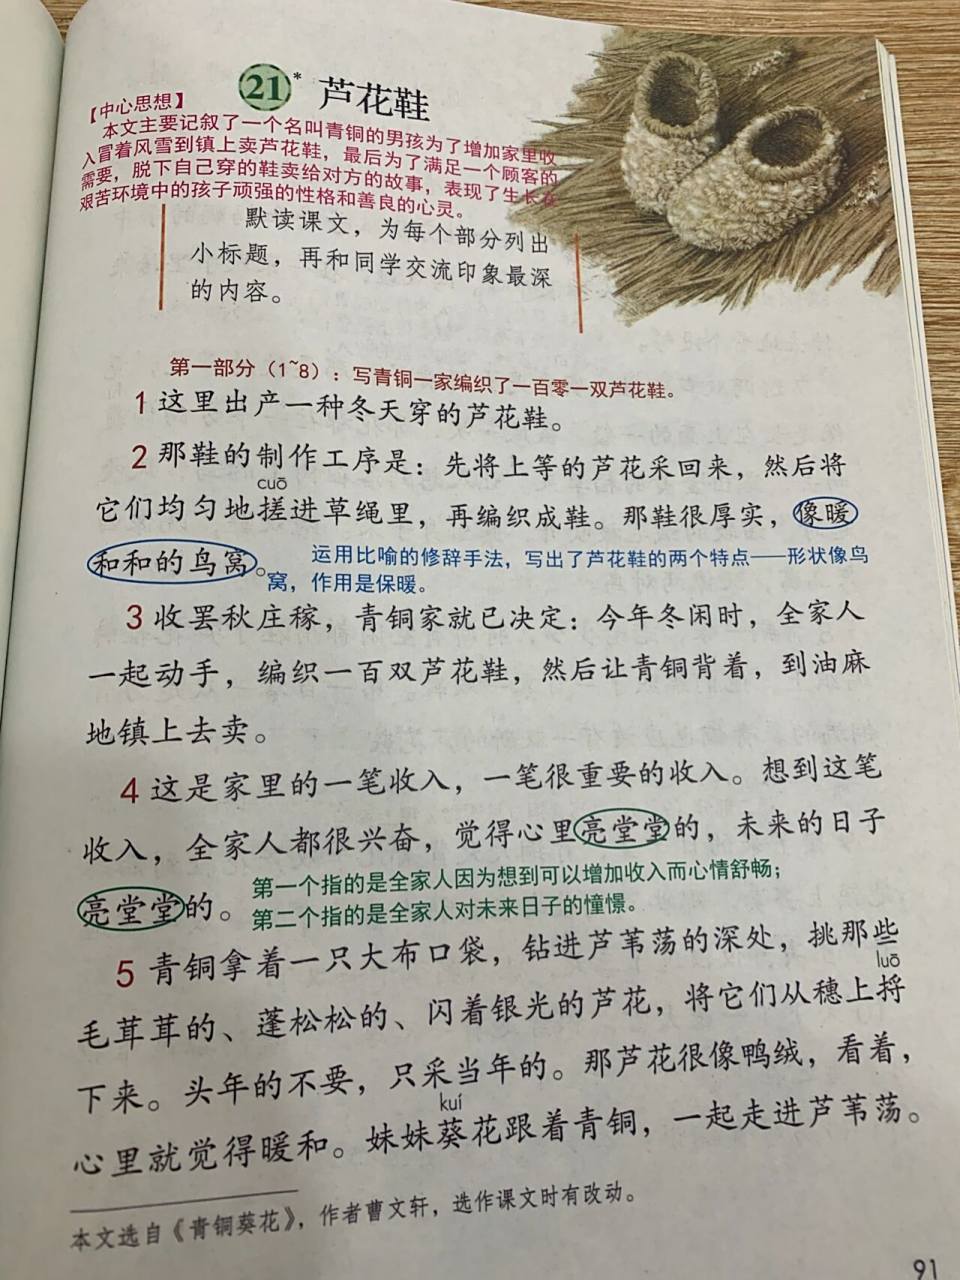 21* 芦花鞋
【中心思想】
本文主要记叙了一个名叫青铜的男孩为了增加家里收
入冒着风雪到镇上卖芦花鞋，最后为了满足一个顾客的
需要，脱下自己穿的鞋卖给对方的故事，表现了生长在
艰苦环境中的孩子顽强的性格和善良的心灵。
默读课文，为每个部分列出
小标题，再和同学交流印象最深
的内容。
第一部分（1~8）：写青铜一家编织了一百零一双芦花鞋。
1 这里出产一种冬天穿的芦花鞋。
2 那鞋的制作工序是：先将上等的芦花采回来，然后将
cuō
它们均匀地搓进草绳里，再编织成鞋。那鞋很厚实，像暖
和和的鸟窝。
运用比喻的修辞手法，写出了芦花鞋的两个特点——形状像鸟
窝，作用是保暖。
3 收罢秋庄稼，青铜家就已决定：今年冬闲时，全家人
一起动手，编织一百双芦花鞋，然后让青铜背着，到油麻
地镇上去卖。
4 这是家里的一笔收入，一笔很重要的收入。想到这笔
收入，全家人都很兴奋，觉得心里亮堂堂的，未来的日子
亮堂堂的。
第一个指的是全家人因为想到可以增加收入而心情舒畅；
第二个指的是全家人对未来日子的憧憬。
5 青铜拿着一只大布口袋，钻进芦苇荡的深处，挑那些
luō
毛茸茸的、蓬松松的、闪着银光的芦花，将它们从穗上捋
下来。头年的不要，只采当年的。那芦花很像鸭绒，看着，
kuí
心里就觉得暖和。妹妹葵花跟着青铜，一起走进芦苇荡。
本文选自《青铜葵花》，作者曹文轩，选作课文时有改动。
91